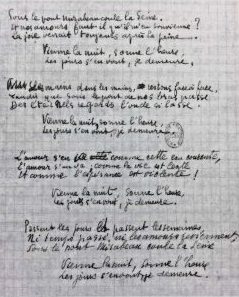 Sous le pont Mirabeau coule la Seine.
Et nos amours faut-il qu'il m'en souvienne ?
La joie venait toujours après la peine
Vienne la nuit, sonne l'heure,
Les jours s'en vont, je demeure.
Les mains dans les mains, restons face à face,
Tandis que sous le pont de nos bras passe
Des éternels regards l'onde si lasse.
Vienne la nuit, sonne l'heure,
Les jours s'en vont, je demeure.
L'amour s'en va comme cette eau courante,
L'amour s'en va comme la vie est lente
Et comme l'espérance est violente !
Vienne la nuit, sonne l'heure,
Les jours s'en vont, je demeure.
Passent les jours et passent les semaines,
Ni temps passé, ni les amours reviennent,
Sous le Pont Mirabeau coule la Seine
Vienne la nuit, sonne l'heure
Les jours s'en vont je demeure.